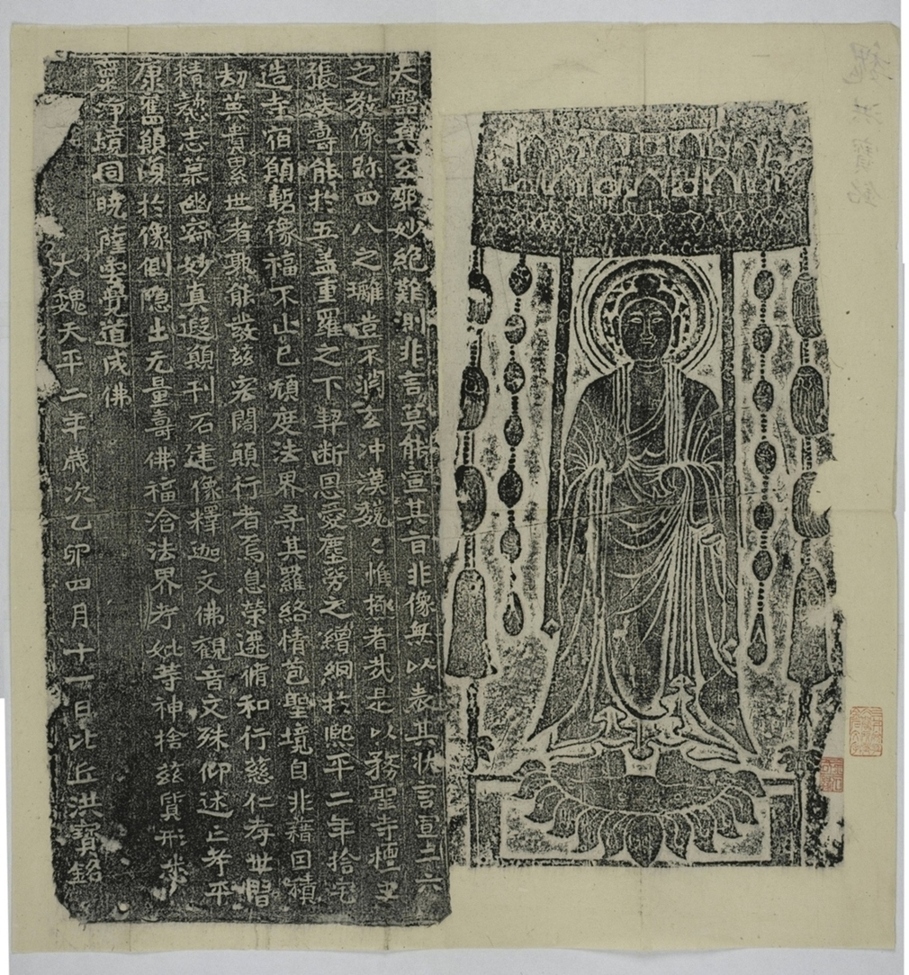 魏洪寶銘
夫靈真玄廓妙絕難測非言莫能宣其旨非像無以表其狀言宣二六
之教像跡四八之璀豈不淵玄冲漠魏〻惟極者哉是以務聖寺檀主
張法壽能於五蓋重羅之下契断恩愛塵勞之繒網於熙平二年捨宅
造寺宿願暫像福不止已頑度法界尋其羅絡情苞聖境自非藉因積
劫莫貴累世者孰能發茲宏闊願行者焉息榮遷脩和行慈仁孝世習
精懃志慕幽寂妙真遐願刊石建像釋迦文佛觀音文殊仰述亡考平
康舊願復於像側隱出无量壽佛福洽法界考妣等神捨茲質形悉
稟淨境同曉薩雲覺道成佛
大魏天平二年歲次乙卯四月十一日比丘洪寶銘